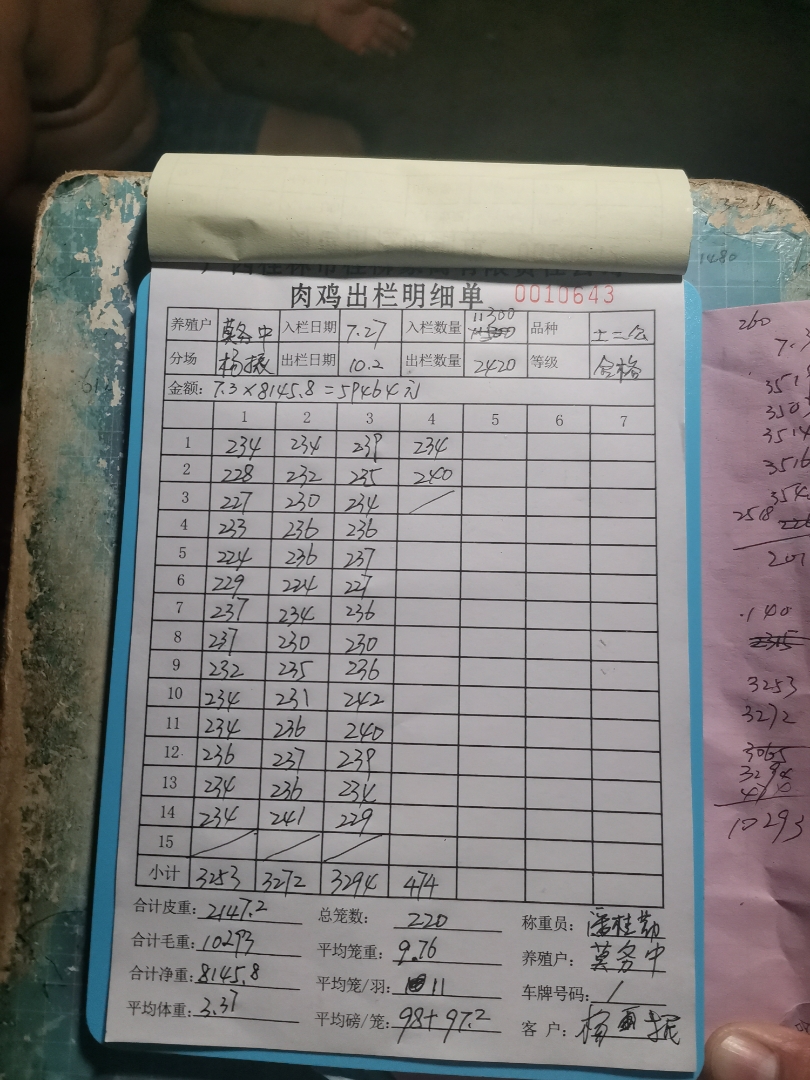 肉鸡出栏明细单 0010643
养殖户 莫务中 入栏日期 7.27 入栏数量 11300 品种 土二公
分场 杨振 出栏日期 10.2 出栏数量 2420 等级 合格
金额: 7.3×8145.8=59464元
1 2 3 4 5 6 7
1 234 234 239 234
2 228 232 235 240
3 227 230 234
4 233 236 236
5 224 236 237
6 229 224 227
7 237 234 236
8 237 230 230
9 232 235 236
10 234 231 242
11 234 236 240
12 236 237 239
13 234 236 234
14 234 241 229
15
小计 3253 3272 3294 474
合计皮重: 2147.2 总笼数: 220 称重员: 潘桂勤
合计毛重: 10293 平均笼重: 9.76 养殖户: 莫务中
合计净重: 8145.8 平均笼/羽: 11 车牌号码: /
平均体重: 3.37 平均磅/笼: 98+97.2 客 户: 杨振
3254
1480
260
7.3
3514
3516
354
2518
201
140
3253
3272
3065
3294
474
10293